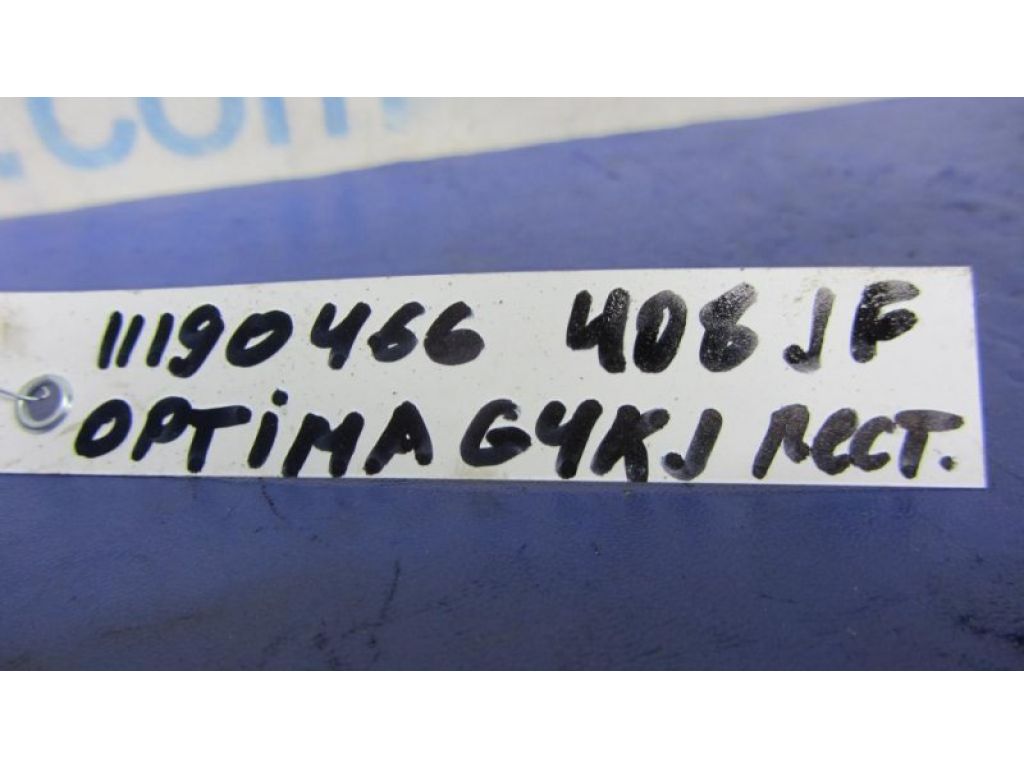 .com
11190466 408 JF
OPTiMA G4KJ рест.